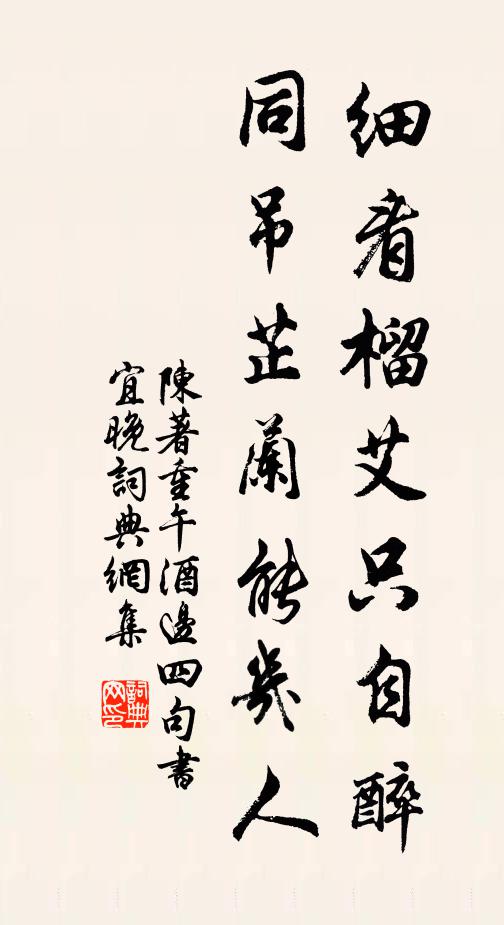 细看榴艾只自醉
同吊芷蘭能幾人
陳著重午酒邊四句書
宜晚詞典網集
詞典网印